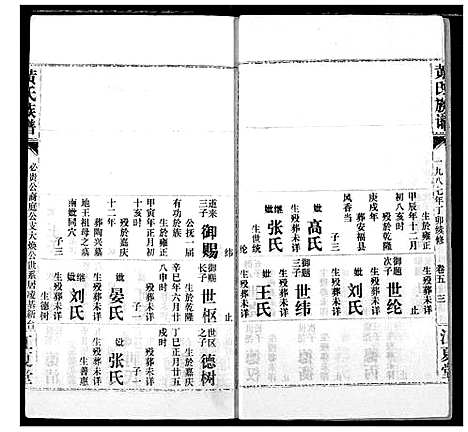 黄氏族谱
一九八七年丁卯续修
卷五
三
江夏堂
生於雍正
甲辰年十二月
初八亥时
殁於乾隆
葬安福县
风香当
媺高氏
生殁葬未详
子三
继张氏
生世统
御赐次子世纶
生殁葬未详
媺刘氏
生殁葬未详
止
御题三子世纬
生殁葬未详
媺王氏
生殁葬未详
纶
纬
止
道来三子御赐
公抚一届
有功於族
生於雍正
甲寅年正月初
十亥时
殁於嘉庆
十二年
葬陶兴墓
地王祖母之墓
南媺同穴
子三
御赐长子世枢
生於乾隆
辛巳年六月廿
八申时
生殁葬未详
媺晏氏
生殁葬未详
继刘氏
生殁葬未详
生德树
世区之子德树
生於嘉庆
丁巳正月廿五
戌时
生殁葬未详
媺张氏
子一
生善惠
黄氏族谱
必贵公裔庭公支大焕公世系居凌基新台
江夏堂